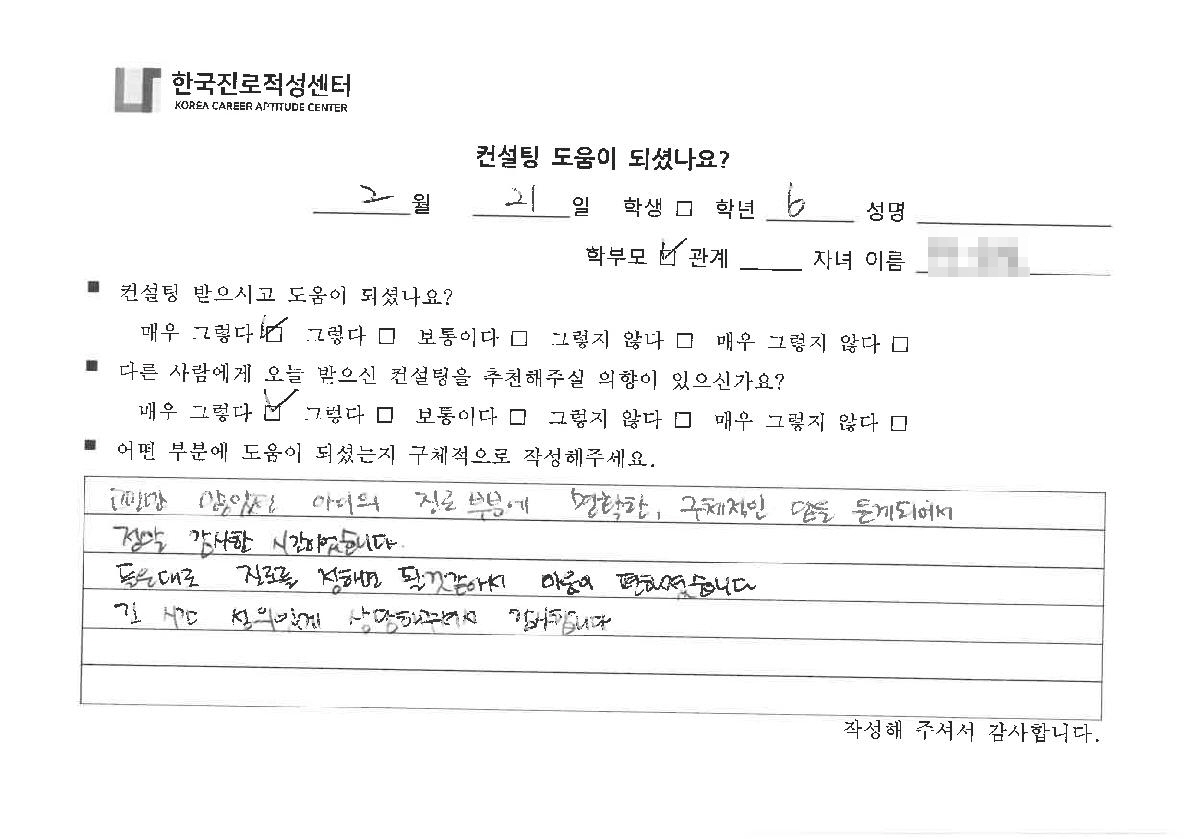 한국진로적성센터
KOREA CAREER APTITUDE CENTER
컨설팅 도움이 되셨나요?
2 월 21 일 학생 □ 학년 6 성명
학부모 ☑ 관계 자녀 이름
■ 컨설팅 받으시고 도움이 되셨나요?
매우 그렇다 ☑ 그렇다 □ 보통이다 □ 그렇지 않다 □ 매우 그렇지 않다 □
■ 다른 사람에게 오늘 받으신 컨설팅을 추천해주실 의향이 있으신가요?
매우 그렇다 ☑ 그렇다 □ 보통이다 □ 그렇지 않다 □ 매우 그렇지 않다 □
■ 어떤 부분에 도움이 되셨는지 구체적으로 작성해주세요.
아이의 진로 부분에 명확한, 구체적인 답을 듣게되어서
정말 감사한 시간이었습니다.
들은대로 진로를 정해면 될것같아서 마음이 편해졌습니다
긴 시간 성의있게 상담해주셔서 감사합니다
작성해 주셔서 감사합니다.